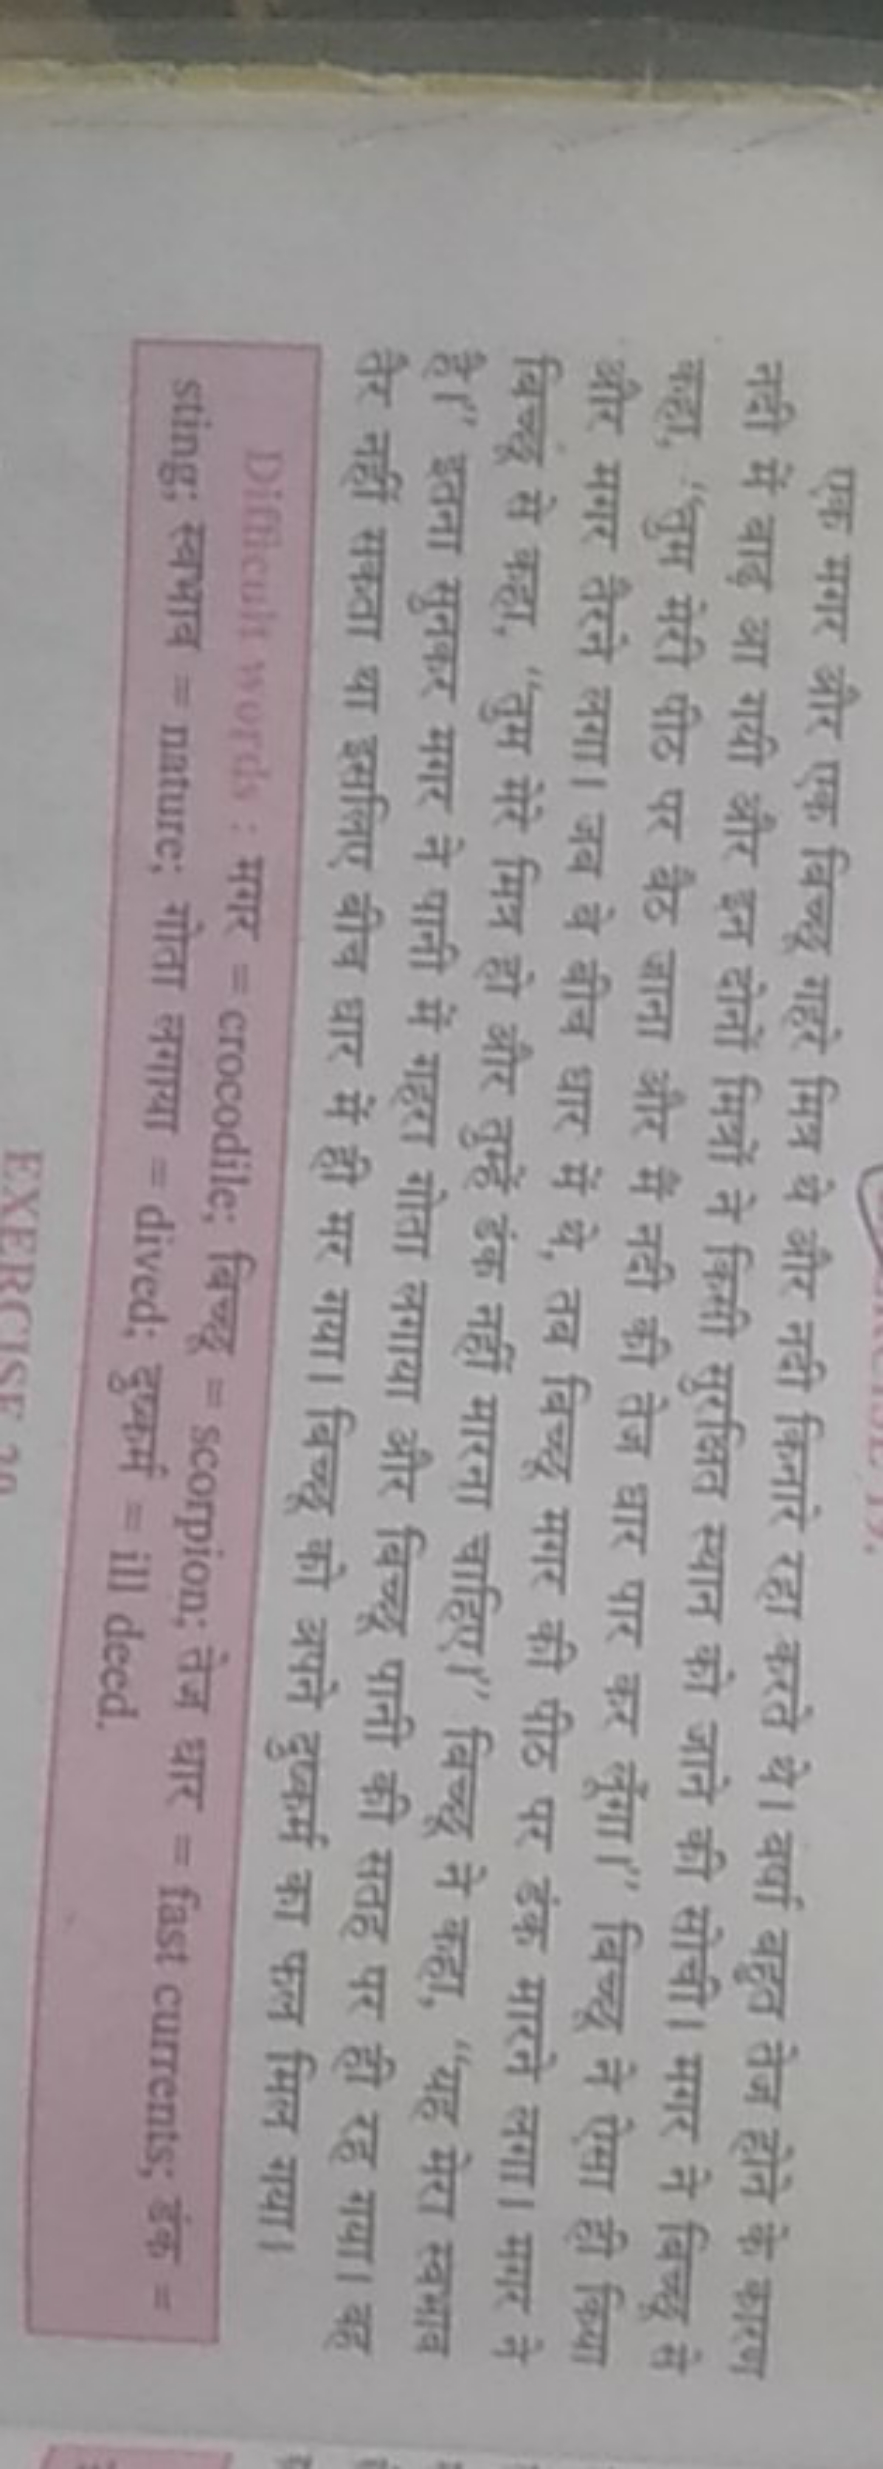 EXERCISE 19.
एक मगर और एक बिच्छू गहरे मित्र थे और नदी किनारे रहा करते थे। वर्षा बहुत तेज होने के कारण
नदी में बाढ़ आ गयी और इन दोनों मित्रों ने किसी सुरक्षित स्थान को जाने की सोची। मगर ने बिच्छू से
कहा, “तुम मेरी पीठ पर बैठ जाना और मैं नदी की तेज धार पार कर लूँगा।” बिच्छू ने ऐसा ही किया
और मगर तैरने लगा। जब वे बीच धार में थे, तब बिच्छू मगर की पीठ पर डंक मारने लगा। मगर ने
बिच्छू से कहा, “तुम मेरे मित्र हो और तुम्हें डंक नहीं मारना चाहिए।” बिच्छू ने कहा, “यह मेरा स्वभाव
है।” इतना सुनकर मगर ने पानी में गहरा गोता लगाया और बिच्छू पानी की सतह पर ही रह गया। वह
तैर नहीं सकता था इसलिए बीच धार में ही मर गया। बिच्छू को अपने दुष्कर्म का फल मिल गया।
Difficult words : मगर = crocodile; बिच्छू = scorpion; तेज धार = fast currents; डंक =
sting; स्वभाव = nature; गोता लगाया = dived; दुष्कर्म = ill deed.
EXERCISE 20